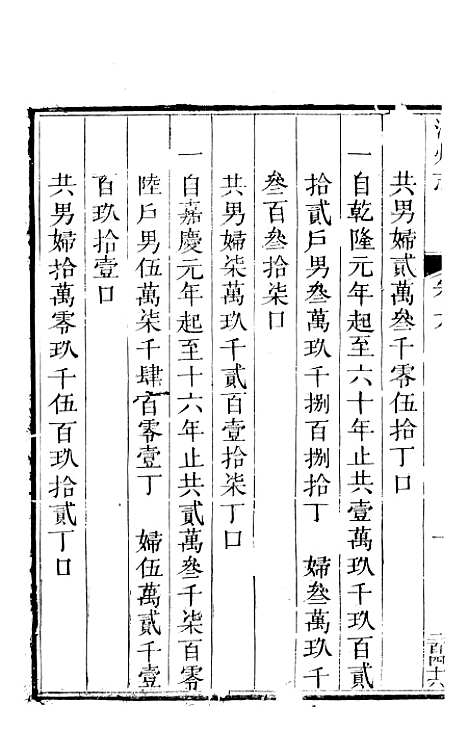 共男婦貳萬叁千零伍拾丁口
一自乾隆元年起至六十年止共壹萬玖千玖百貳
拾貳戶男叁萬玖千捌百捌拾丁　婦叁萬玖千
叁百叁拾柒口
共男婦柒萬玖千貳百壹拾柒丁口
一自嘉慶元年起至十六年止共貳萬叁千柒百零
陸戶男伍萬柒千肆百零壹丁　婦伍萬貳千壹
百玖拾壹口
共男婦拾萬零玖千伍百玖拾貳丁口